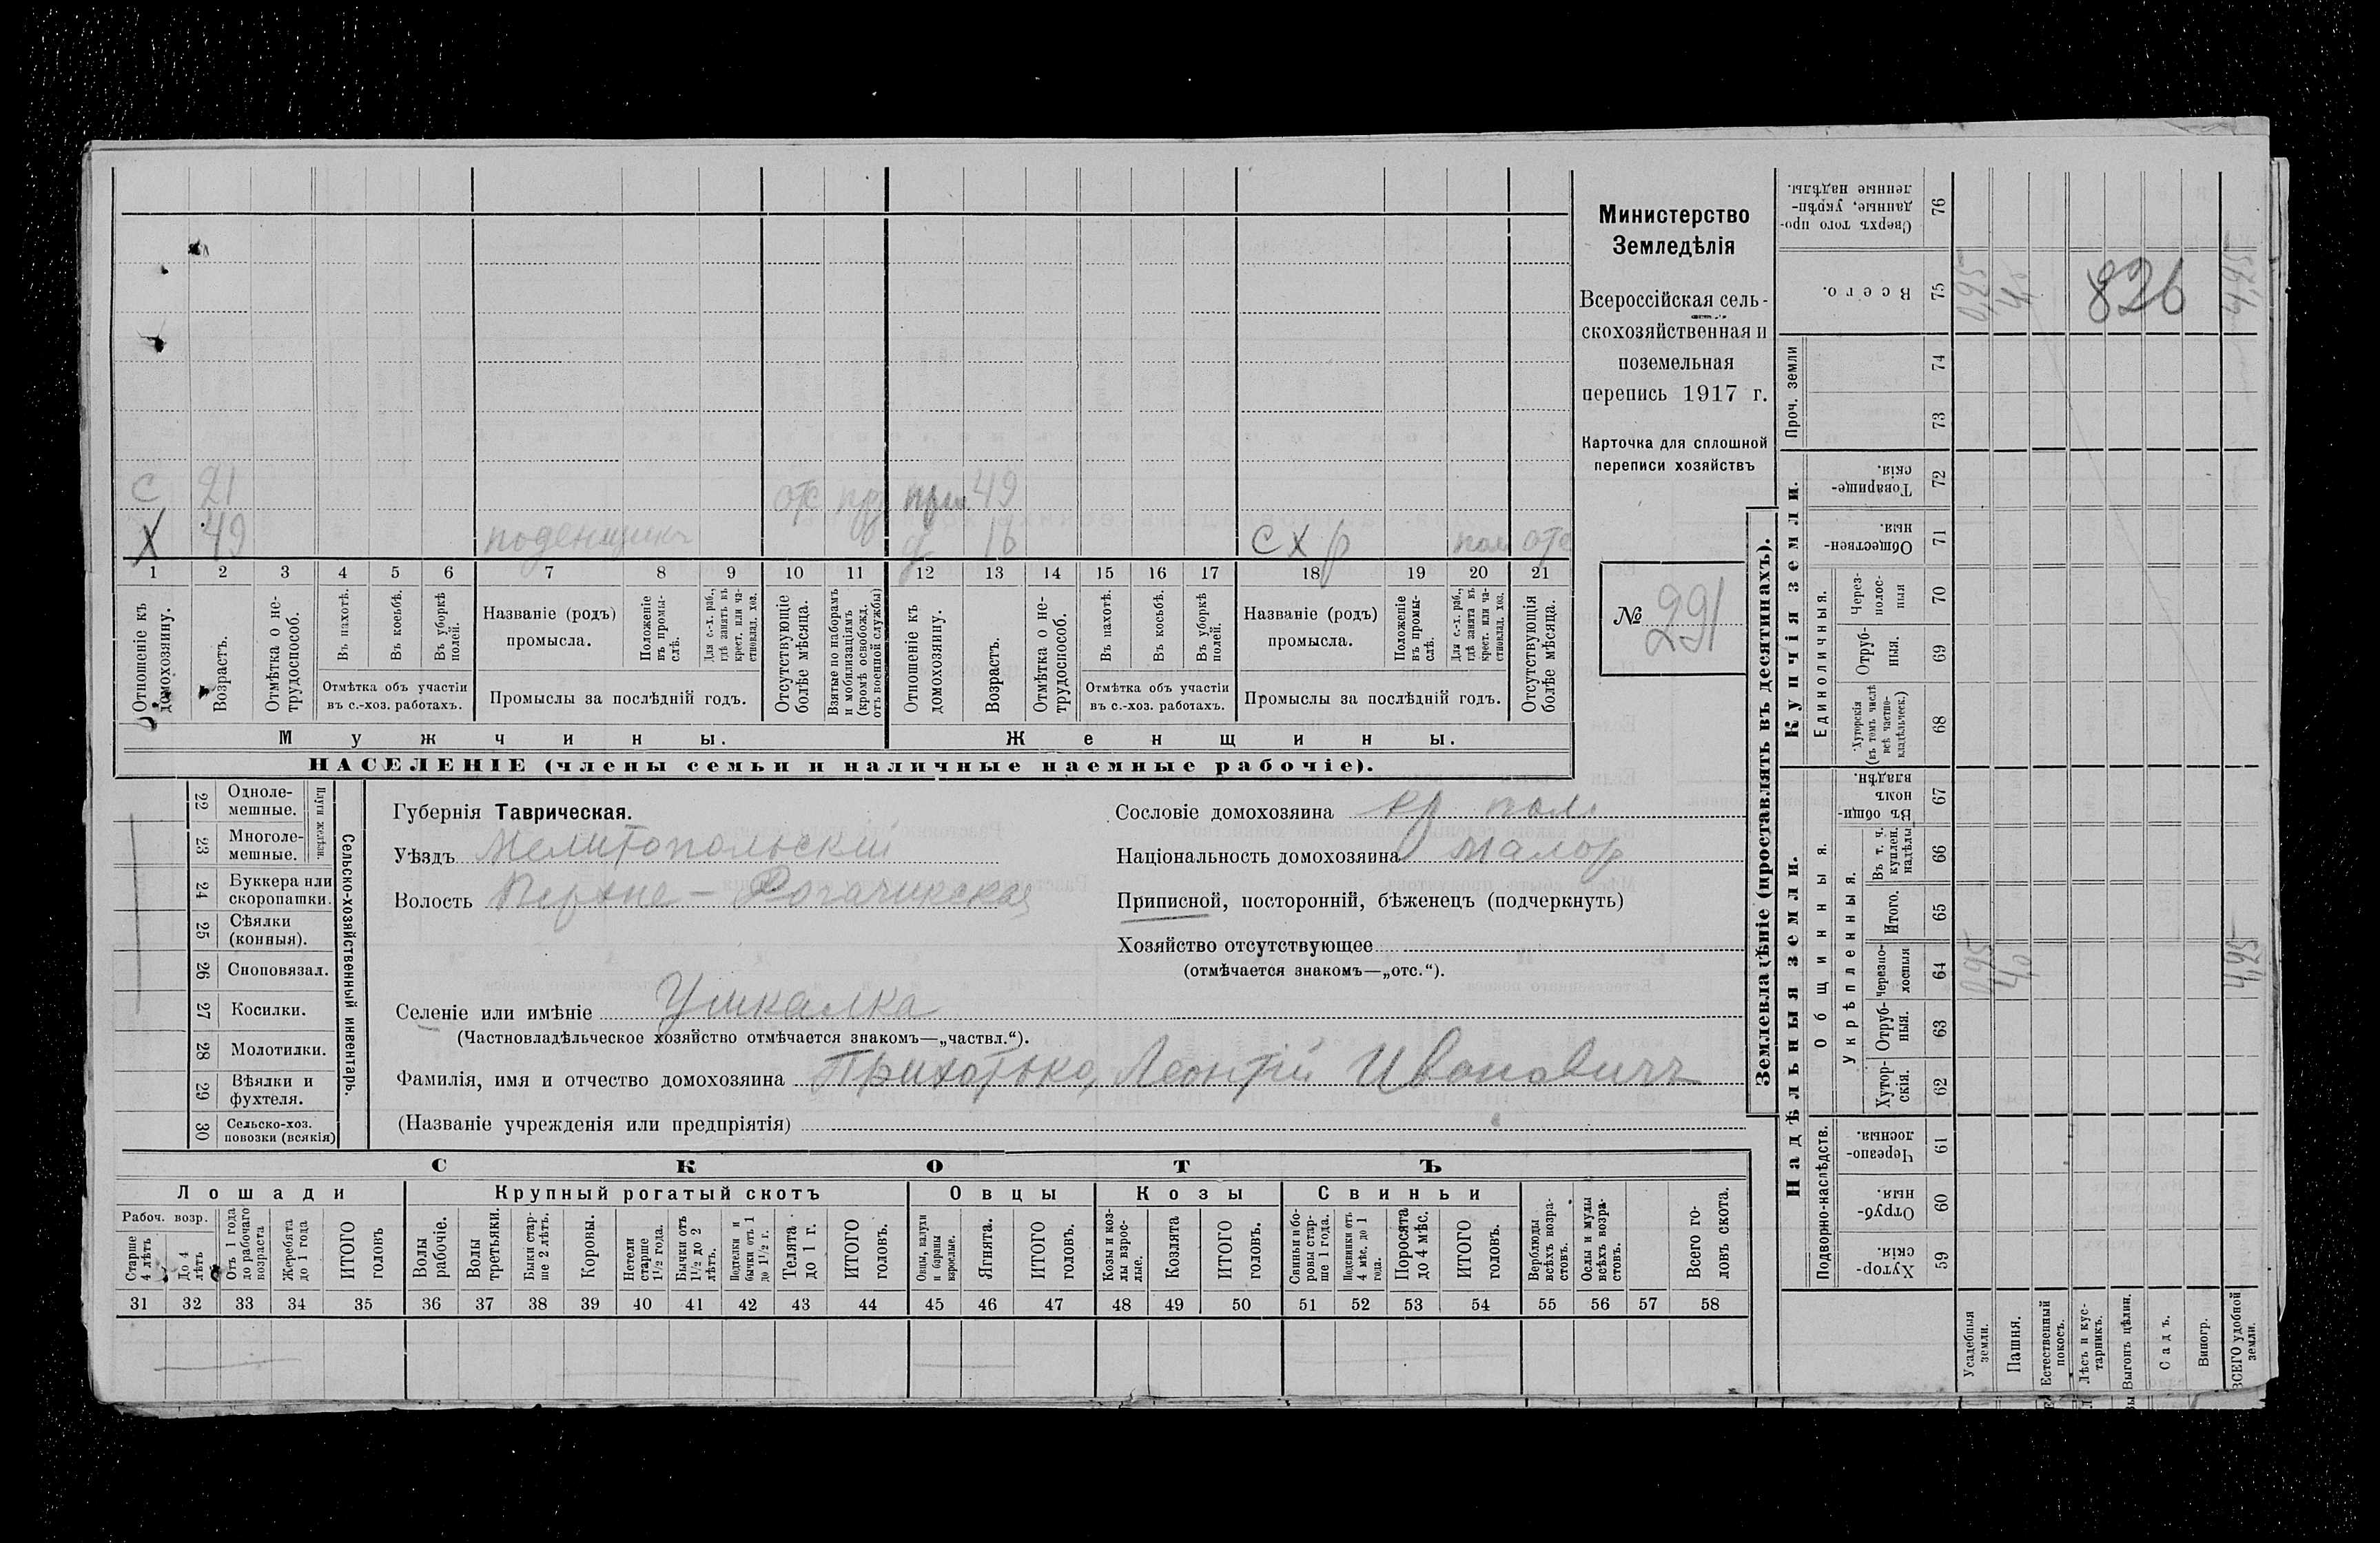 С 21 отс пр 49
Х 49 поденщикъ 16 С х р отс
1 2 3 4 5 6 7 8 9 10 11 12 13 14 15 16 17 18 19 20 21
Отношеніе къ домохозяину.
Возрастъ.
Отмѣтка о нетрудоспособ.
Въ пахотѣ.
Въ косьбѣ.
Въ уборкѣ полей.
Отмѣтка объ участіи
въ с.-хоз. работахъ.
Названіе (родъ)
промысла.
Положеніе въ промыслѣ.
Для с.-х. раб., гдѣ занятъ въ крест. или частновлад. хоз.
Промыслы за послѣдній годъ.
Отсутствующіе болѣе мѣсяца.
Взятые по наборамъ и мобилизаціямъ (кромѣ освобожд. отъ военной службы)
Отношеніе къ домохозяину.
Возрастъ.
Отмѣтка о нетрудоспособ.
Въ пахотѣ.
Въ косьбѣ.
Въ уборкѣ полей.
Отмѣтка объ участіи
въ с.-хоз. работахъ.
Названіе (родъ)
промысла.
Положеніе въ промыслѣ.
Для с.-х. раб., гдѣ занята въ крест. или частновлад. хоз.
Промыслы за послѣдній годъ.
Отсутствующія болѣе мѣсяца.
Мужчины. Женщины.
НАСЕЛЕНІЕ (члены семьи и наличные наемные рабочіе).
Министерство
Земледѣлія
Всероссійская сель-
скохозяйственная и
поземельная
перепись 1917 г.
Карточка для сплошной
переписи хозяйствъ
№ 291
22 Одноле-
мешные.
23 Многоле-
мешные.
Плуги желѣзн.
24 Буккера или
скоропашки.
25 Сѣялки
(конныя).
26 Сноповязал.
27 Косилки.
28 Молотилки.
29 Вѣялки и
фухтеля.
30 Сельско-хоз.
повозки (всякія)
Сельско-хозяйственный инвентарь.
Губернія Таврическая.
Уѣздъ Мелитопольскій
Волость Верхне-Рогачикская
Селеніе или имѣніе Ушкалка
(Частновладѣльческое хозяйство отмѣчается знакомъ—„частвл.“).
Фамилія, имя и отчество домохозяина Прихотько, Леонтій Ивановичъ
(Названіе учрежденія или предпріятія)
Сословіе домохозяина кр
Національность домохозяина малор
Приписной, посторонній, бѣженецъ (подчеркнуть)
Хозяйство отсутствующее
(отмѣчается знакомъ—„отс.“).
СКОТЪ
Лошади Крупный рогатый скотъ Овцы Козы Свиньи
Рабоч. возр.
Старше 4 лѣтъ
До 4 лѣтъ
Отъ 1 года до рабочаго возраста
Жеребята до 1 года
ИТОГО головъ
Волы рабочіе.
Волы третьяки.
Быки старше 2 лѣтъ.
Коровы.
Нетели старше 1½ года.
Бычки отъ 1½ до 2 лѣтъ.
Подтелки и бычки отъ 1 до 1½ г.
Телята до 1 г.
ИТОГО головъ.
Овцы, валухи и бараны взрослые.
Ягнята.
ИТОГО головъ.
Козы и козлы взрослые.
Козлята
ИТОГО головъ.
Свиньи и боровы старше 1 года.
Подсвинки отъ 4 мѣс. до 1 года.
Поросята до 4 мѣс.
ИТОГО головъ.
Верблюды всѣхъ возрастовъ.
Ослы и мулы всѣхъ возрастовъ.
Всего головъ скота.
31 32 33 34 35 36 37 38 39 40 41 42 43 44 45 46 47 48 49 50 51 52 53 54 55 56 57 58
Землевладѣніе (проставлять въ десятинахъ).
Надѣльныя земли. Купчія земли. Проч. земли
Подворно-наслѣдств.
Общинныя.
Укрѣпленныя.
Единоличныя.
Хуторскія. 59
Отрубныя. 60
Черезполосныя. 61
Хуторскія. 62
Отрубныя. 63
Черезполосныя 64
Итого. 65
Въ т. ч. куплен. надѣлы 66
Въ общиномъ владѣн. 67
Хуторскія (въ томъ числѣ всѣ частновладѣльческ.) 68
Отрубныя. 69
Черезполосныя 70
Общественныя. 71
Товарищескія. 72
73
74
Всего. 75
Сверхъ того проданные, укрѣпленные надѣлы. 76
Усадебныя земли. 0,95 0,95
Пашня. 4,0 4,0
Естественный покосъ.
Лѣсъ и кустарникъ.
Выгонъ цѣлин.
Садъ.
Виногр.
ВСЕГО удобной земли. 4,95 4,95
826